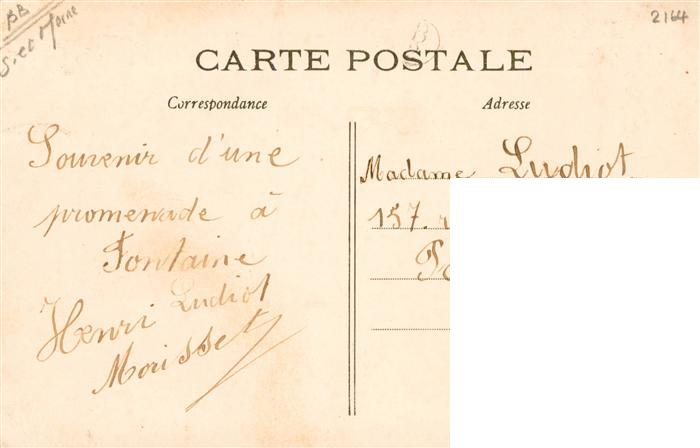 BB
S. et Marne
2164
B
CARTE POSTALE
Correspondance
Adresse
Souvenir d'une
promenade à
Fontaine
Henri Ludiot
Morisset
Madame Ludiot
157.